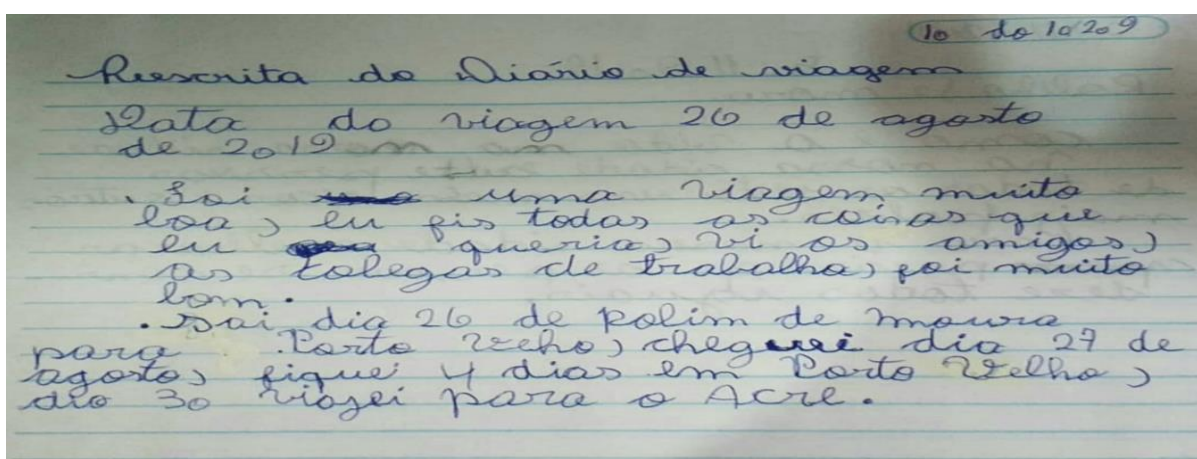 10 do 10 209
Reescrita do Diário de viagem
Data do viagem 26 de agosto
de 2019
. Foi uma viagem muito
boa, eu fis todas as coisas que
eu queria, vi os amigos,
as colegas de trabalho, foi muito
bom.
. Sai dia 26 de Rolim de moura
para Porto Veho, cheguei dia 27 de
agosto, fiquei 4 dias em Porto Velho,
dia 30 viajei para o Acre.